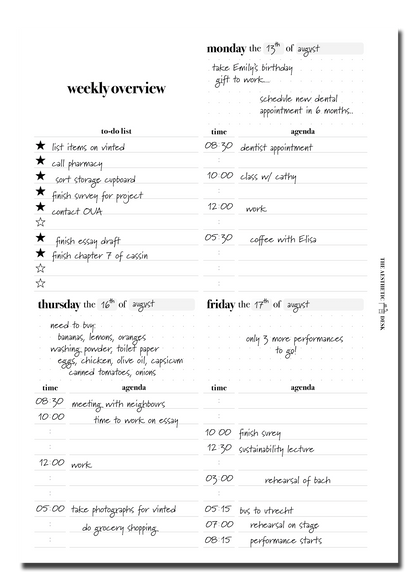 monday the 13th of august
take Emily's birthday
gift to work...
schedule new dental
appointment in 6 months..
weekly overview
to-do list
★ list items on vinted
★ call pharmacy
★ sort storage cupboard
★ finish survey for project
★ contact OVA
☆
★ finish essay draft
★ finish chapter 7 of cassin
☆
☆
time agenda
08:30 dentist appointment
10:00 class w/ cathy
12:00 work
05:30 coffee with Elisa
thursday the 16th of august
need to buy:
bananas, lemons, oranges
washing powder, toilet paper
eggs, chicken, olive oil, capsicum
canned tomatoes, onions
time agenda
08:30 meeting with neighbours
10:00 time to work on essay
12:00 work
05:00 take photographs for vinted
do grocery shopping
friday the 17th of august
only 3 more performances
to go!
time agenda
10:00 finish surey
12:30 sustainability lecture
03:00 rehearsal of bach
05:15 bus to utrecht
07:00 rehearsal on stage
08:15 performance starts
THE AESTHETIC DESK